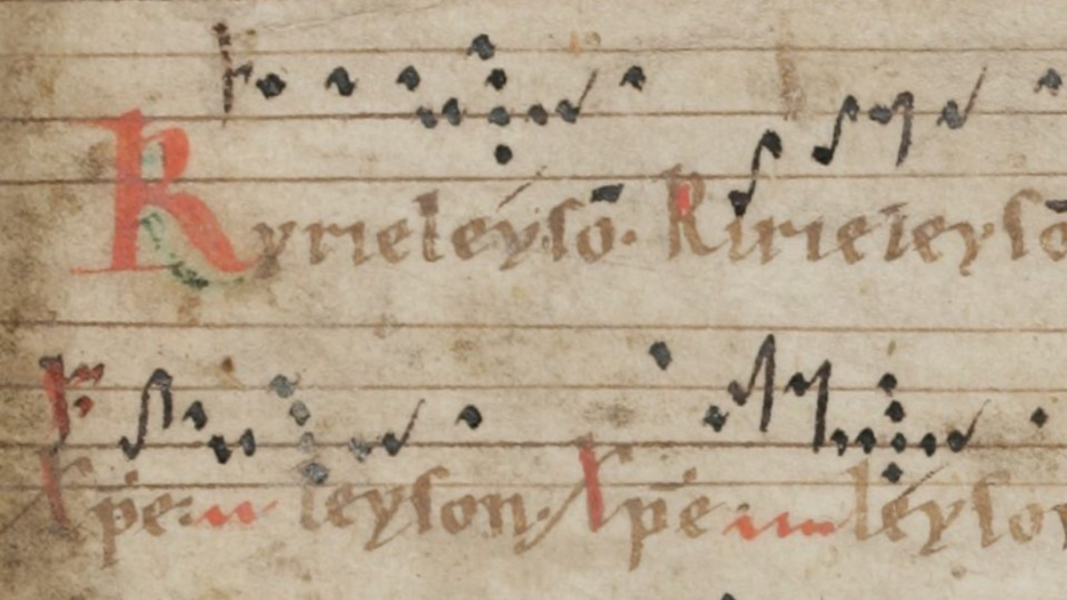 Kyrieleysō. Kirieleysō
Xp̄e leyson. Xp̄e leyson